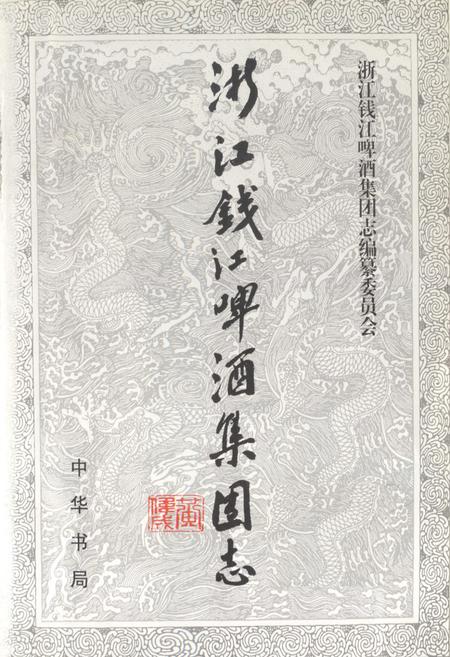 浙江钱江啤酒集团志编纂委员会
浙江钱江啤酒集团志
中华书局